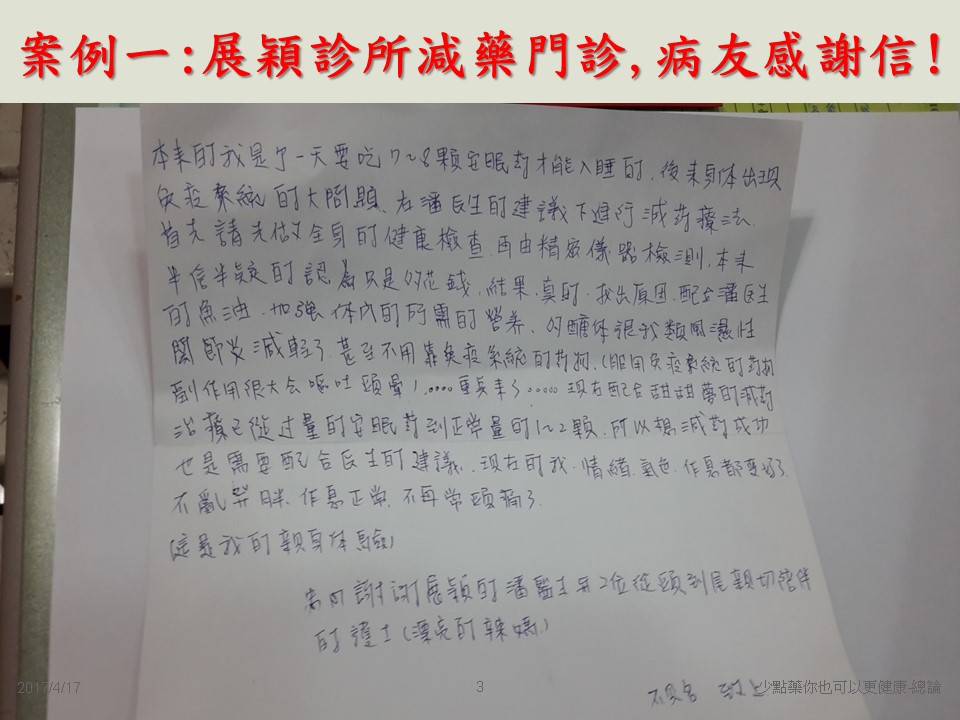 案例一:展穎診所減藥門診,病友感謝信!
本來的我是了一天要吃7~8顆安眠葯才能入睡的.後來身体出現
免疫系統的大問題.在潘医生的建議下進行減葯療法.
首先請先做全身的健康檢查.再由精密儀器檢測.本來
半信半疑的認為只是多花錢.結果.真的.找出原因.配合潘医生
的魚油.加強体內的所需的營养.的醣体讓我類風濕性
關節炎減輕了.甚至不用靠免疫系統的葯物.(服用免疫系統的葯物
副作用很大会嘔吐頭暈)....重点來了.....現在配合甜甜夢的減葯
治療已從过量的安眠葯到正常量的1~2顆.所以想減葯成功
也是需要配合医生的建議.現在的我.情緒.氣色.作息都變好了.
不亂發胖.作息正常.不再常頭痛了.
(這是我的親身体驗)
謝謝展穎的潘醫生与2位從頭到尾親切陪伴
的護士(漂亮的辣媽)
不具名 敬上
2017/4/17
3
少點藥你也可以更健康-總論